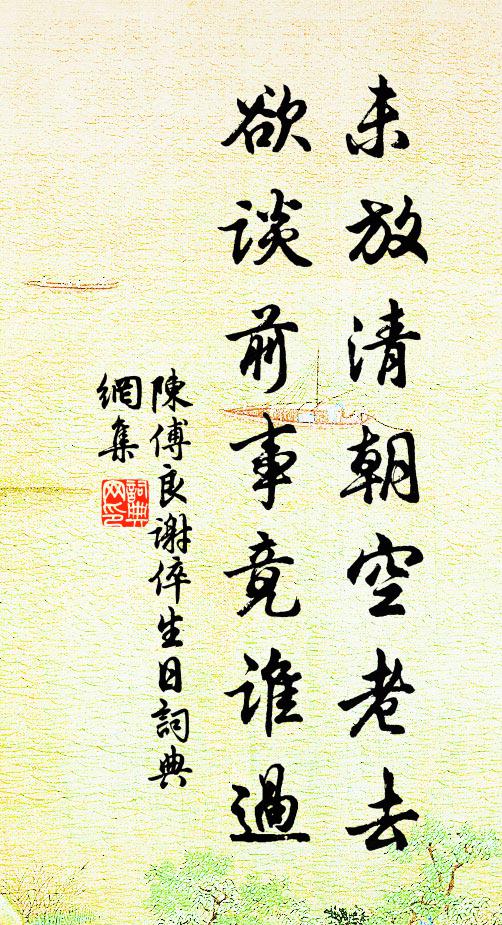 未放清朝空老去
欲談前事竟誰過
陳傅良謝倅生日詞典
網集
詞典
网印